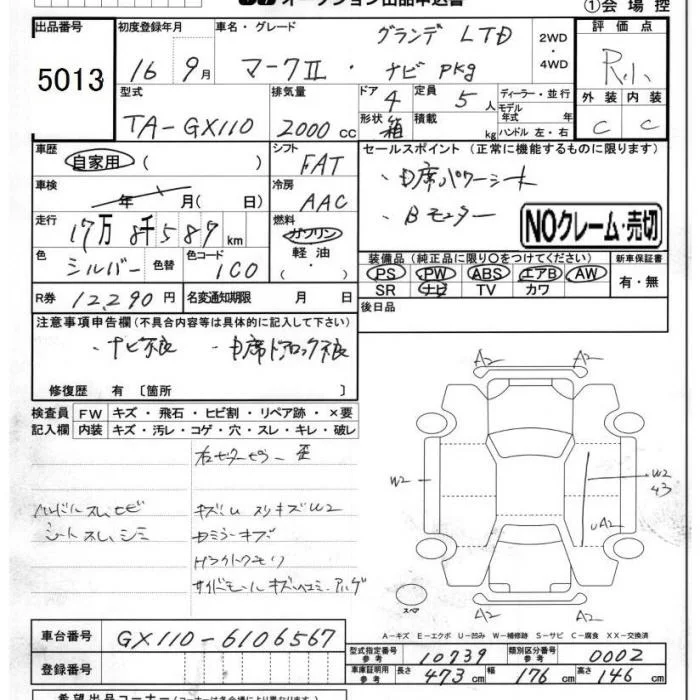 オークション出品申込書
①会場控
出品番号 初度登録年月 車名・グレード グランデ LTD 2WD 評価点
5013 16 9月 マークⅡ・ナビ pkg ・4WD R小
型式 排気量 ドア 4 定員 5人 ディーラー・並行 外装 内装
TA-GX110 2000cc 形状 箱 積載 kg モデル年式 年 ハンドル 左・右 C C
車歴 自家用 ( ) シフト FAT セールスポイント (正常に機能するものに限ります)
車検 年 月( 日) 冷房 AAC
走行 17万8千589km 燃料 ガソリン 軽油 ・Bモニター NOクレーム・売切
色 シルバー 色替 色コード 1C0 装備品 (純正品に限り○をつけてください) 新車保証書
PS PW ABS エアB AW 有・無
SR ナビ TV カワ
R券 12,290円 名変通知期限 月 日 後日品
注意事項申告欄 (不具合内容等は具体的に記入して下さい)
・ナビ不良
修復歴 有 〔箇所 〕
検査員 FW キズ・飛石・ヒビ割・リペア跡・×要
記入欄 内装 キズ・汚レ・コゲ・穴・スレ・キレ・破レ
A2 A2
W2 W2
43
UA2
ハンドルスレ、
シートスレ、シミ
スペア
A2 A2
A-キズ E-エクボ U-凹み W-補修跡 S-サビ C-腐食 XX-交換済
車台番号 GX110-6106567 型式指定番号 参考 10739 類別区分番号 参考 0002
登録番号 車庫証明用 参考 長さ 473cm 幅 176cm 高さ 146cm
希望出品コーナー